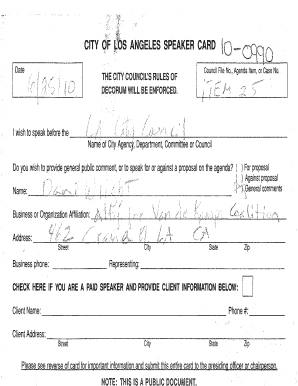 CITY OF LOS ANGELES SPEAKER CARD 10-0990
Date
Council File No., Agenda Item, or Case No.
6/25/10
THE CITY COUNCIL'S RULES OF
DECORUM WILL BE ENFORCED.
ITEM 25
I wish to speak before the LA City Council
Name of City Agency, Department, Committee or Council
Do you wish to provide general public comment, or to speak for or against a proposal on the agenda? ( ) For proposal
( ) Against proposal
Name: David Wright ( ) General comments
Business or Organization Affiliation: Coalition
Address: 462 LA CA
Street City State Zip
Business phone: Representing:
CHECK HERE IF YOU ARE A PAID SPEAKER AND PROVIDE CLIENT INFORMATION BELOW:
Client Name: Phone #:
Client Address:
Street City State Zip
Please see reverse of card for important information and submit this entire card to the presiding officer or chairperson.
NOTE: THIS IS A PUBLIC DOCUMENT.